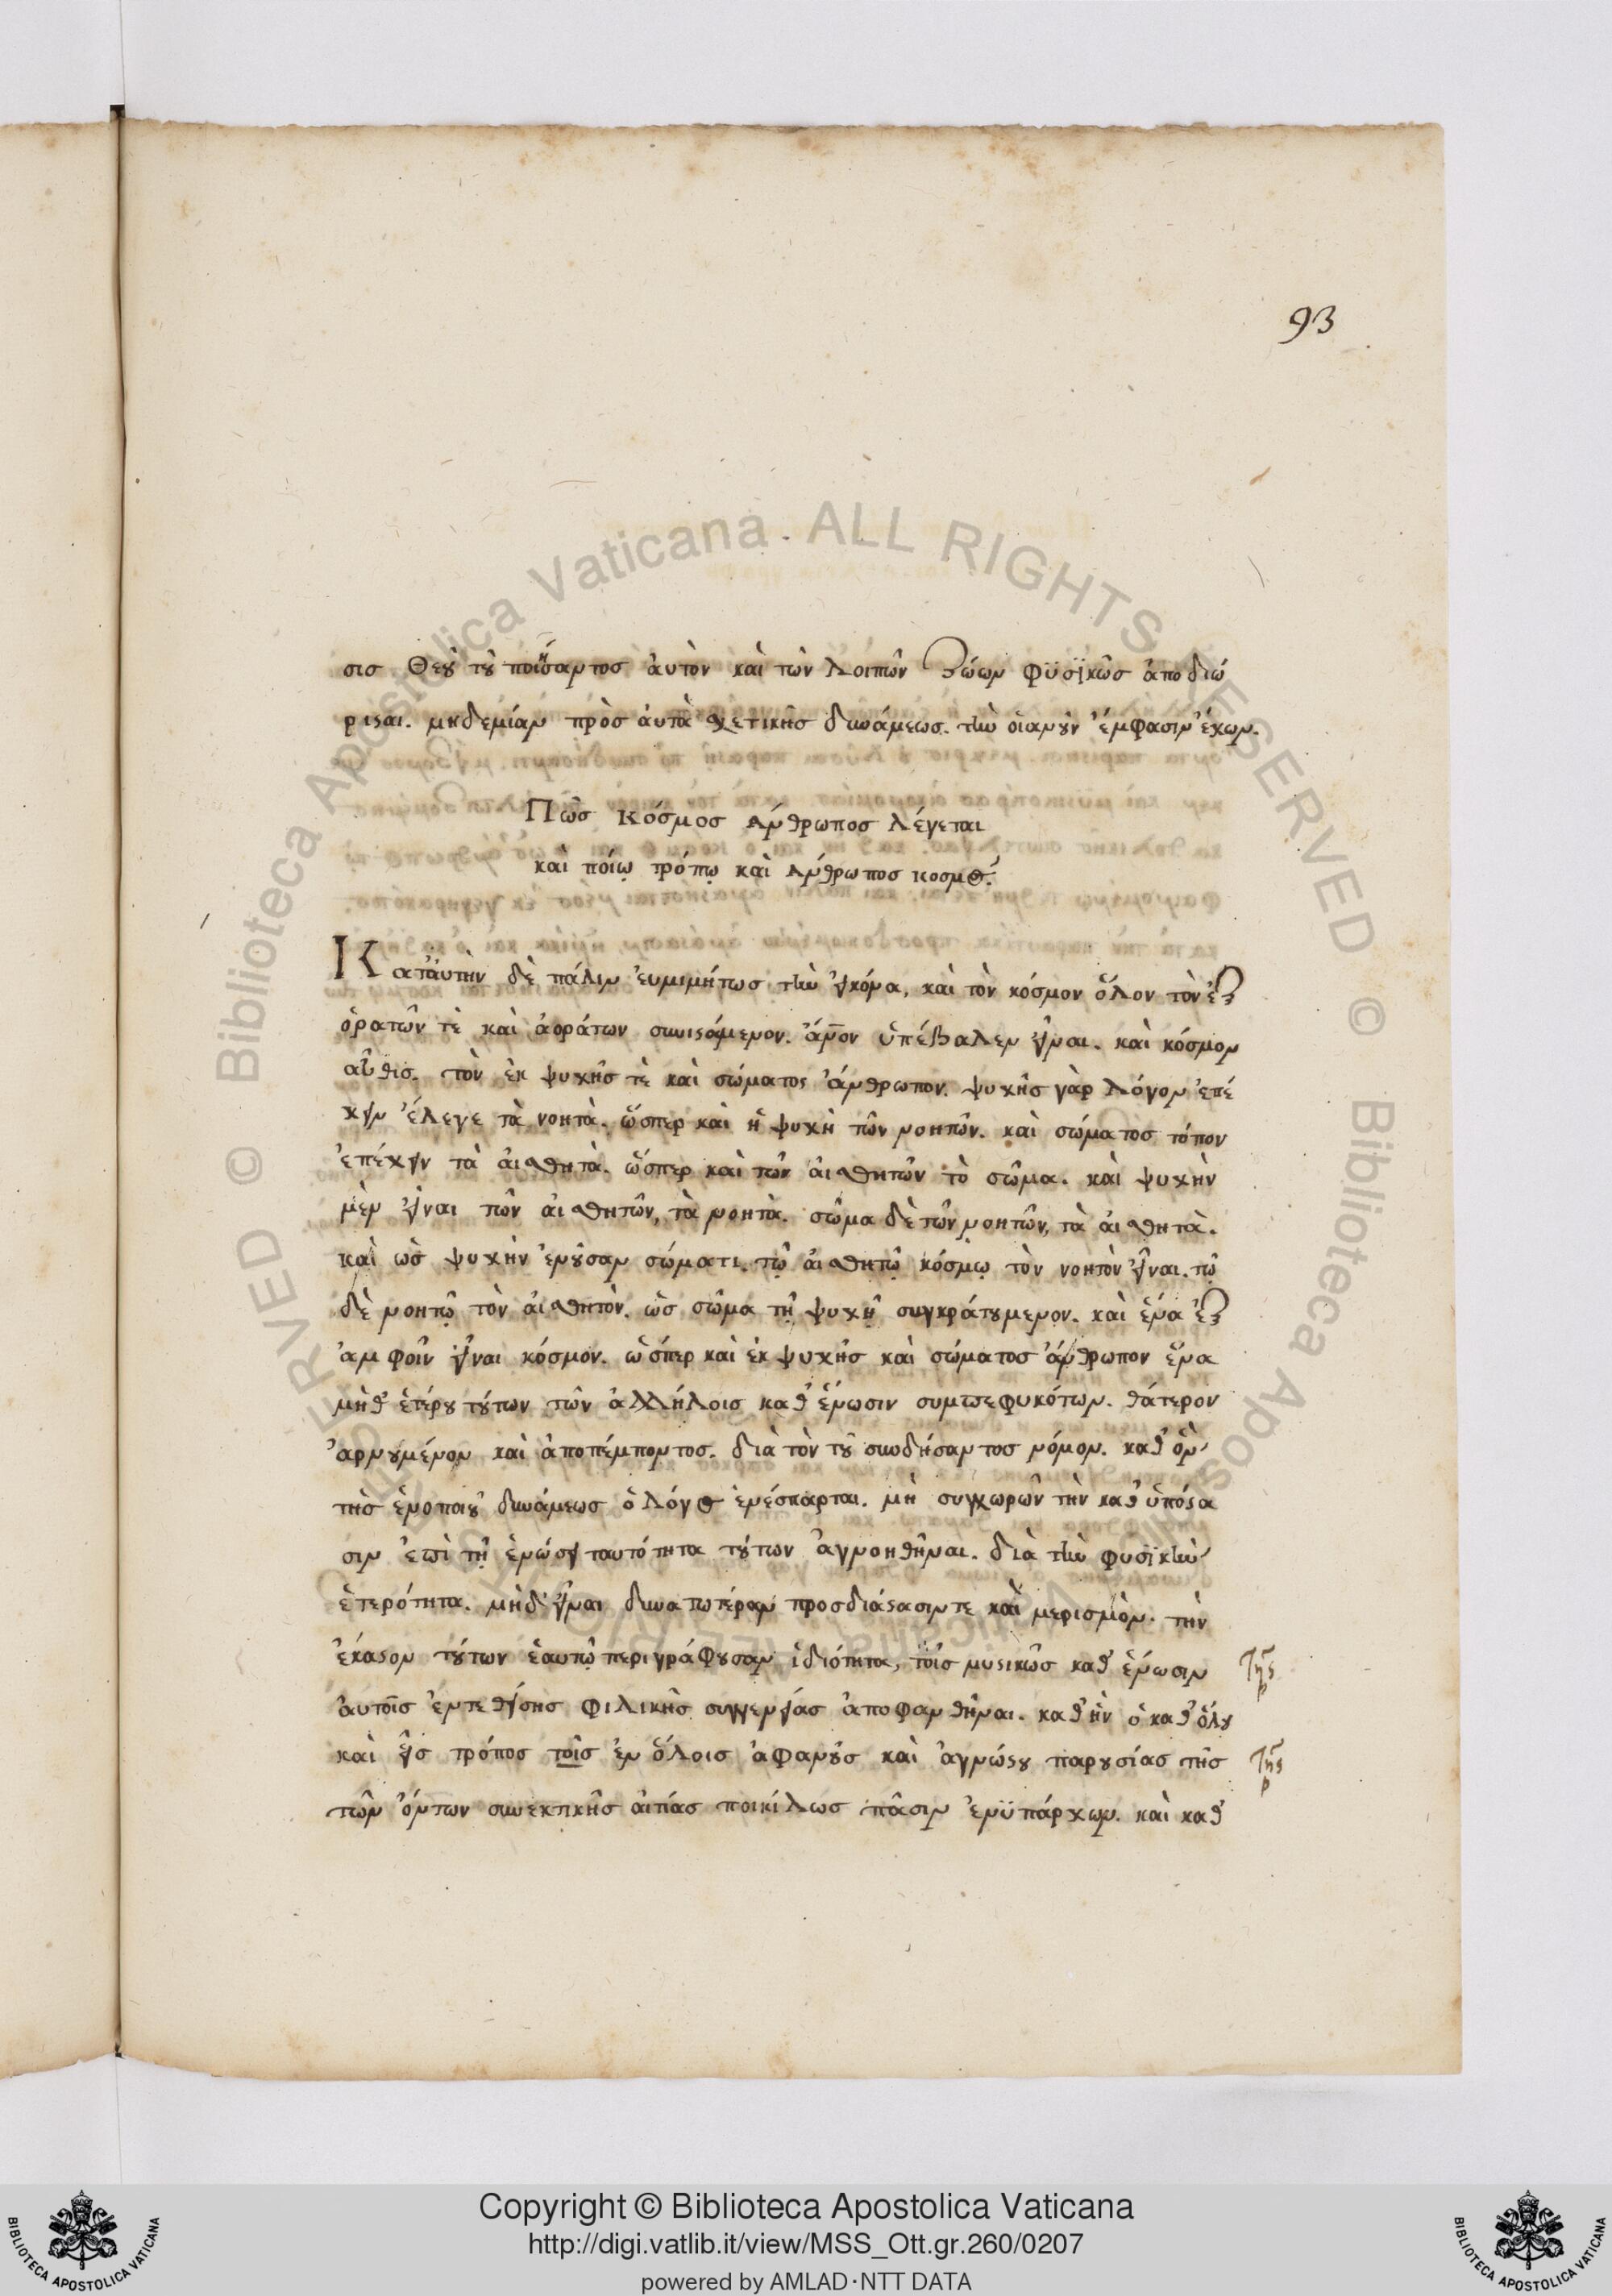 93
σις Θεοῦ τοῦ ποιήσαντος ἀυτὸν καὶ τῶν λοιπῶν ζώων φϋσϊκῶς ἀποδιώ
ρισαι. μηδεμίαν πρὸς ἀυτὰ σχετικῆς δυνάμεως. τὴν οἱανοῦν ἔμφασιν ἔχων.
Πῶς κόσμος ἄνθρωπος λέγεται
καὶ ποίῳ τρόπῳ καὶ ἄνθρωπος κοσμος.
Κατ᾽ἀυτὴν δὲ πάλιν ἐυμιμήτως τὴν ἐικόνα, καὶ τὸν κόσμον ὅλον τὸν ἐξ
ὁρατῶν τὲ καὶ ἀοράτων συνιστάμενον. ἄν̅ον ὑπέβαλεν εἶναι. καὶ κόσμον
αὖθις. τὸν ἐκ ψυχῆς τὲ καὶ σώματος ἄνθρωπον. ψυχῆς γὰρ λόγον ἐπέ
χειν ἔλεγε τὰ νοητὰ. ὥσπερ καὶ ἡ ψυχὴ τῶν νοητῶν. καὶ σώματος τόπον
ἐπέχειν τὰ ἀισθητὰ. ὥσπερ καὶ τῶν ἀισθητῶν τὸ σῶμα. καὶ ψυχὴν
μὲν εἶναι τῶν ἀισθητῶν, τὰ νοητὰ. σῶμα δὲ τῶν νοητῶν, τὰ ἀισθητὰ.
καὶ ὡς ψυχὴν ἐνοῦσαν σώματι. τῷ ἀισθητῷ κόσμῳ τὸν νοητὸν εἶναι. τῷ
δὲ νοητῷ τὸν ἀισθητὸν. ὡς σῶμα τῇ ψυχῇ συγκράτουμενον. καὶ ἕνα ἐξ
ἀμφοῖν εἶναι κόσμον. ὡσπερ καὶ ἐκ ψυχῆς καὶ σώματος ἄνθρωπον ἕνα
μηθ᾽ ἑτέρου τούτων τῶν ἀλλήλοις καθ᾽ ἕνωσιν συμπεφυκότων. θάτερον
ἀρνουμένου καὶ ἀποπέμποντος. διὰ τὸν τοῦ συνδήσαντος νόμον. καθ᾽ ὃν
τῆς ἑνοποιοῦ δυνάμεως ὁ λόγος ἐνέσπαρται. μὴ συγχωρῶν τὴν καθ᾽ ὑπόστα
σιν ἐπὶ τῇ ἑνώσει ταυτότητα τούτων ἀγνοηθῆναι. διὰ τὴν φυσϊκὴν
ἑτερότητα. μὴδ᾽ εἶναι δυνατωτέραν προσδιάστασιν τε καὶ μερισμὸν. τὴν
ἕκαστον τούτων ἑαυτῷ περιγράφουσαν ἰδιότητα, τοῖς μυστικῶς καθ᾽ ἕνωσιν
ἀυτοῖς ἐντεθείσης φιλικῆς συγγενείας ἀποφανθῆναι. καθ᾽ ἣν ὁ καθ᾽ ὅλου
καὶ εἷς τρόπος τοῖς ἐν ὅλοις ἀφανοῦς καὶ ἀγνώστου παρουσίας τῆς
τῶν ὄντων συνεκτικῆς ἀιτίας ποικίλως πᾶσιν ἐνϋπάρχων. καὶ καθ᾽
τῆς
τῆς
Copyright © Biblioteca Apostolica Vaticana
http://digi.vatlib.it/view/MSS_Ott.gr.260/0207
powered by AMLAD·NTT DATA
Biblioteca Apostolica Vaticana . ALL RIGHTS RESERVED ©
BIBLIOTECA APOSTOLICA VATICANA
BIBLIOTECA APOSTOLICA VATICANA